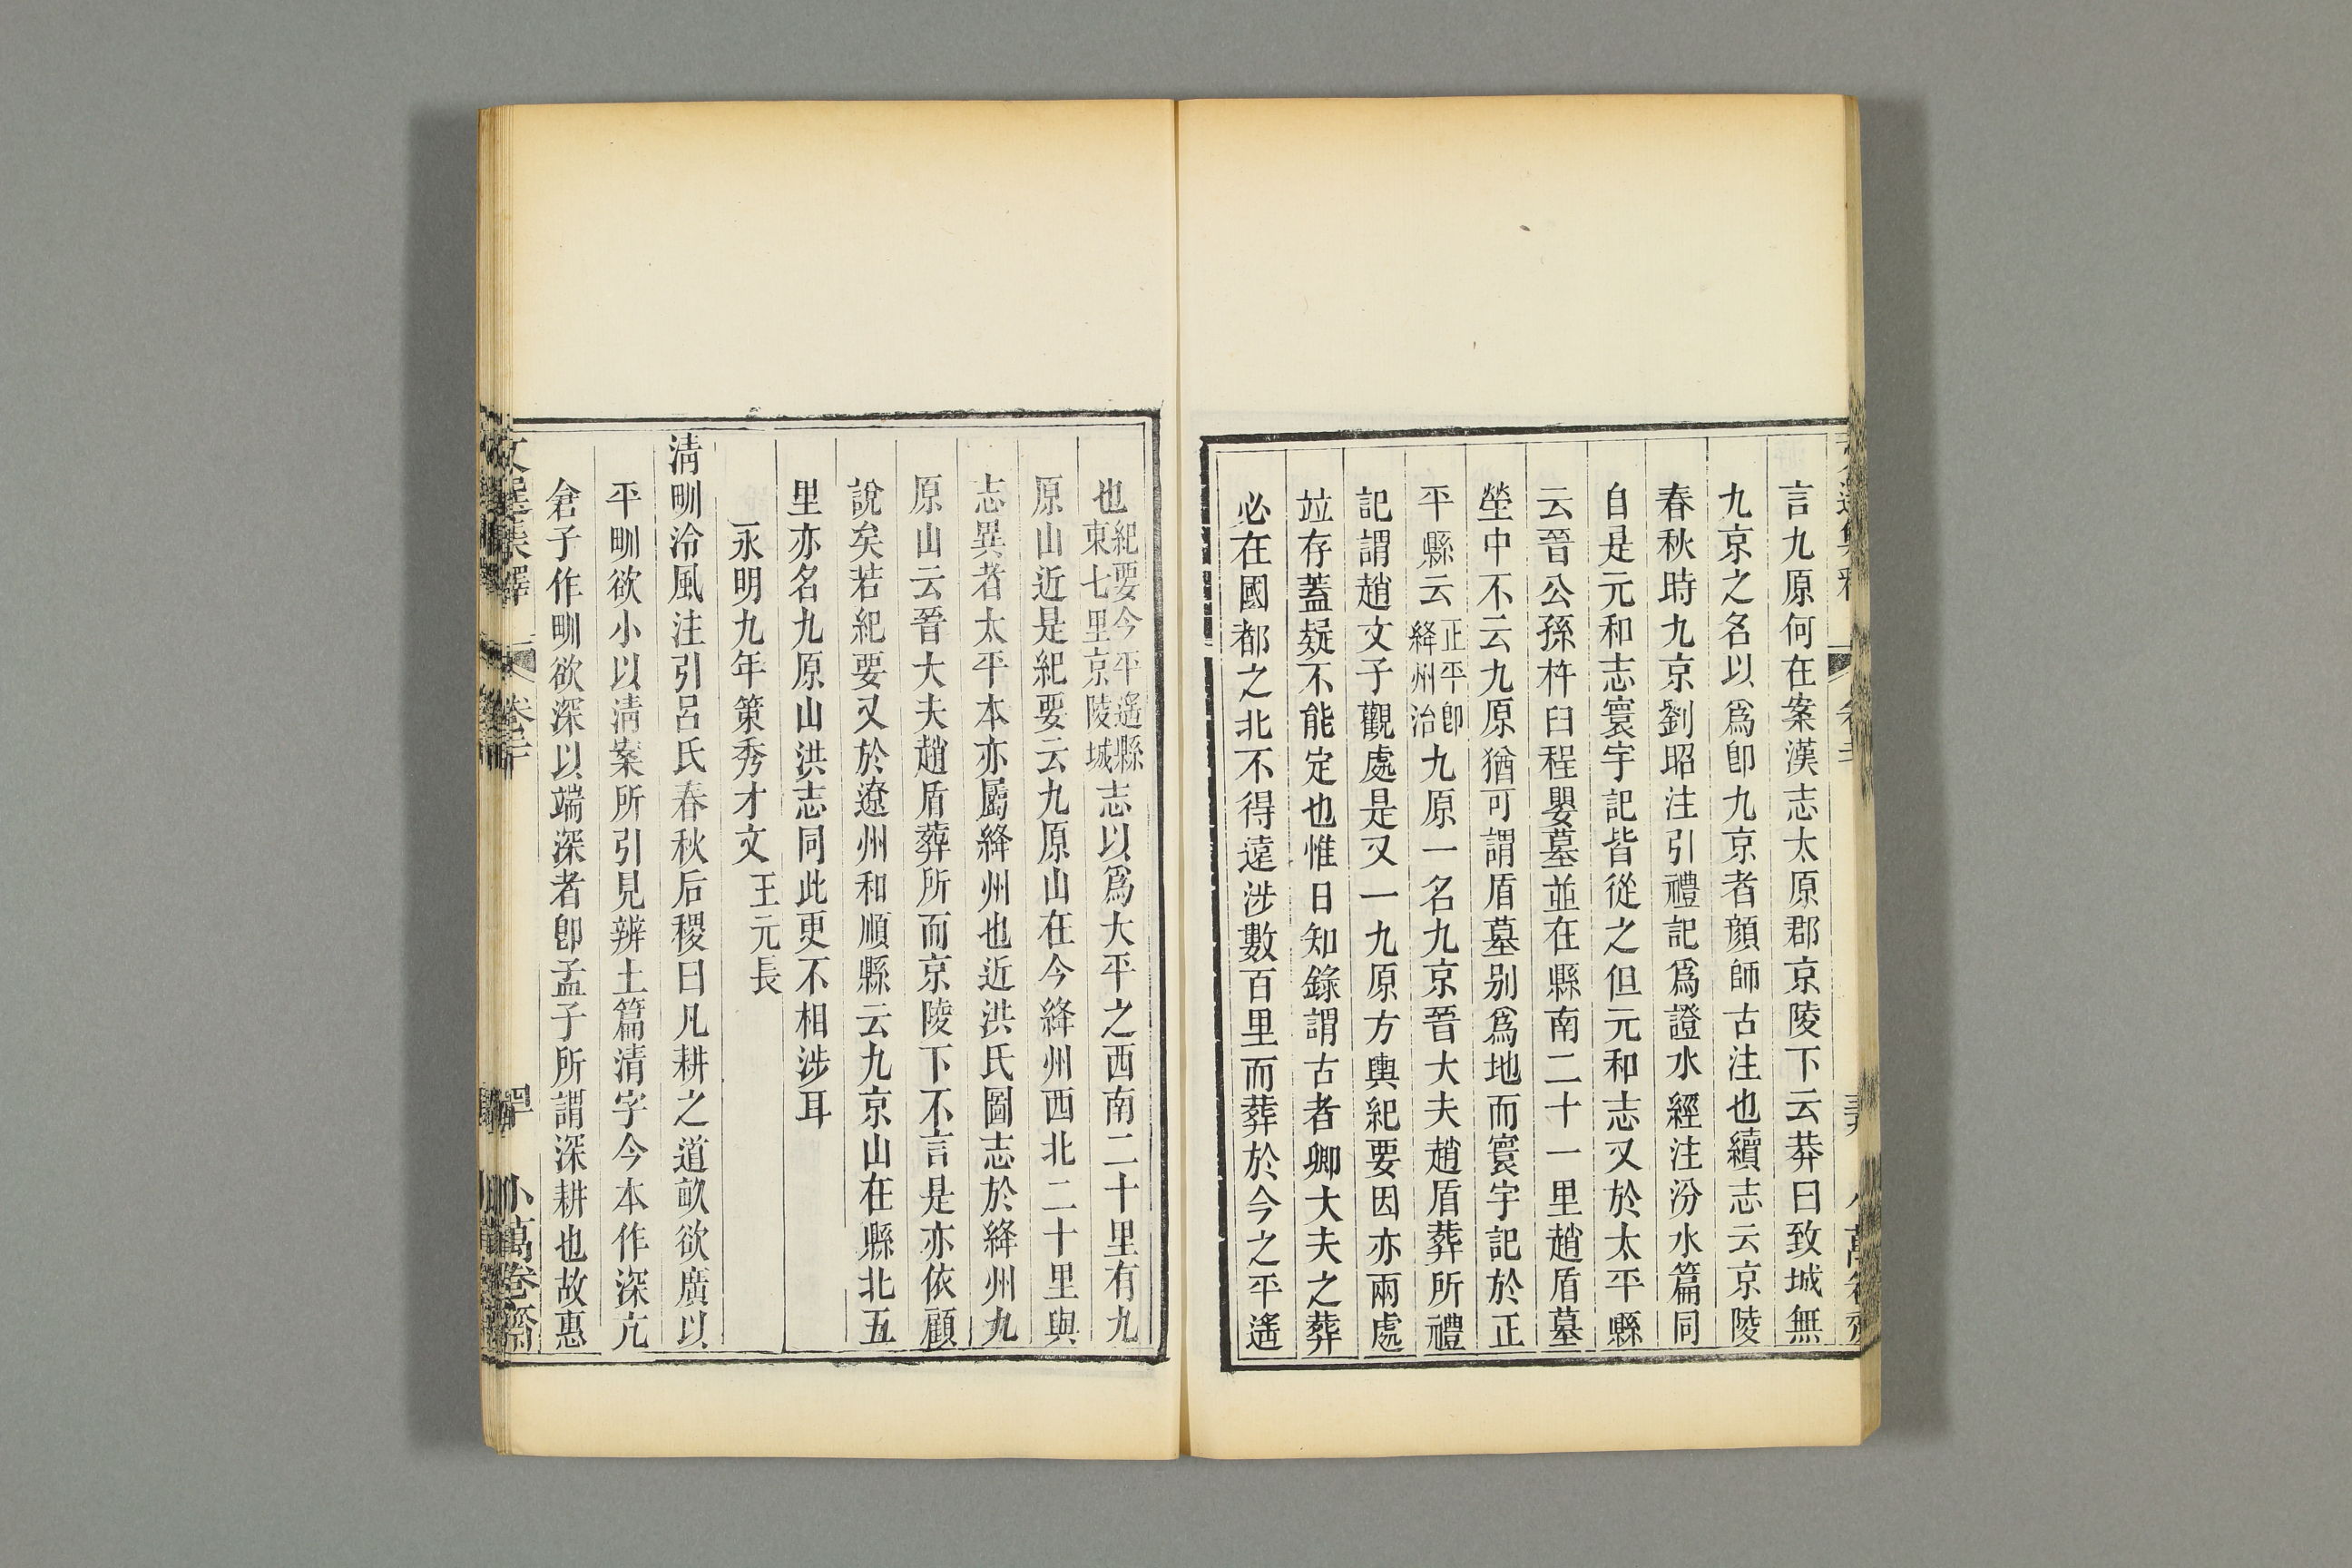 言九原何在案漢志太原郡京陵下云莽曰致城無
九京之名以爲卽九京者顔師古注也續志云京陵
春秋時九京劉昭注引禮記爲證水經注汾水篇同
自是元和志寰宇記皆從之但元和志又於太平縣
云晉公孫杵臼程嬰墓並在縣南二十一里趙盾墓
塋中不云九原猶可謂盾墓别爲地而寰宇記於正
平縣云正平卽絳州治九原一名九京晉大夫趙盾葬所禮
記謂趙文子觀處是又一九原方輿紀要因亦兩處
竝存蓋疑不能定也惟日知錄謂古者卿大夫之葬
必在國都之北不得遠涉數百里而葬於今之平遙
也紀要今平遙縣東七里京陵城志以爲大平之西南二十里有九
原山近是紀要云九原山在今絳州西北二十里與
志異者太平本亦屬絳州也近洪氏圖志於絳州九
原山云晉大夫趙盾葬所而京陵下不言是亦依顧
說矣若紀要又於遼州和順縣云九京山在縣北五
里亦名九原山洪志同此更不相涉耳
永明九年策秀才文 王元長
淸甽泠風注引呂氏春秋后稷曰凡耕之道畝欲廣以
平甽欲小以淸案所引見辨土篇清字今本作深亢
倉子作甽欲深以端深者卽孟子所謂深耕也故惠
文選集釋 小萬卷齋